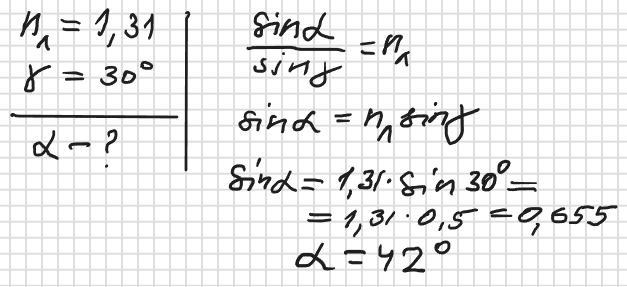 nл = 1,31
γ = 30°
α - ?
sinα / sinγ = nл
sinα = nл sinγ
sinα = 1,31 · sin 30° =
= 1,31 · 0,5 = 0,655
α = 42°